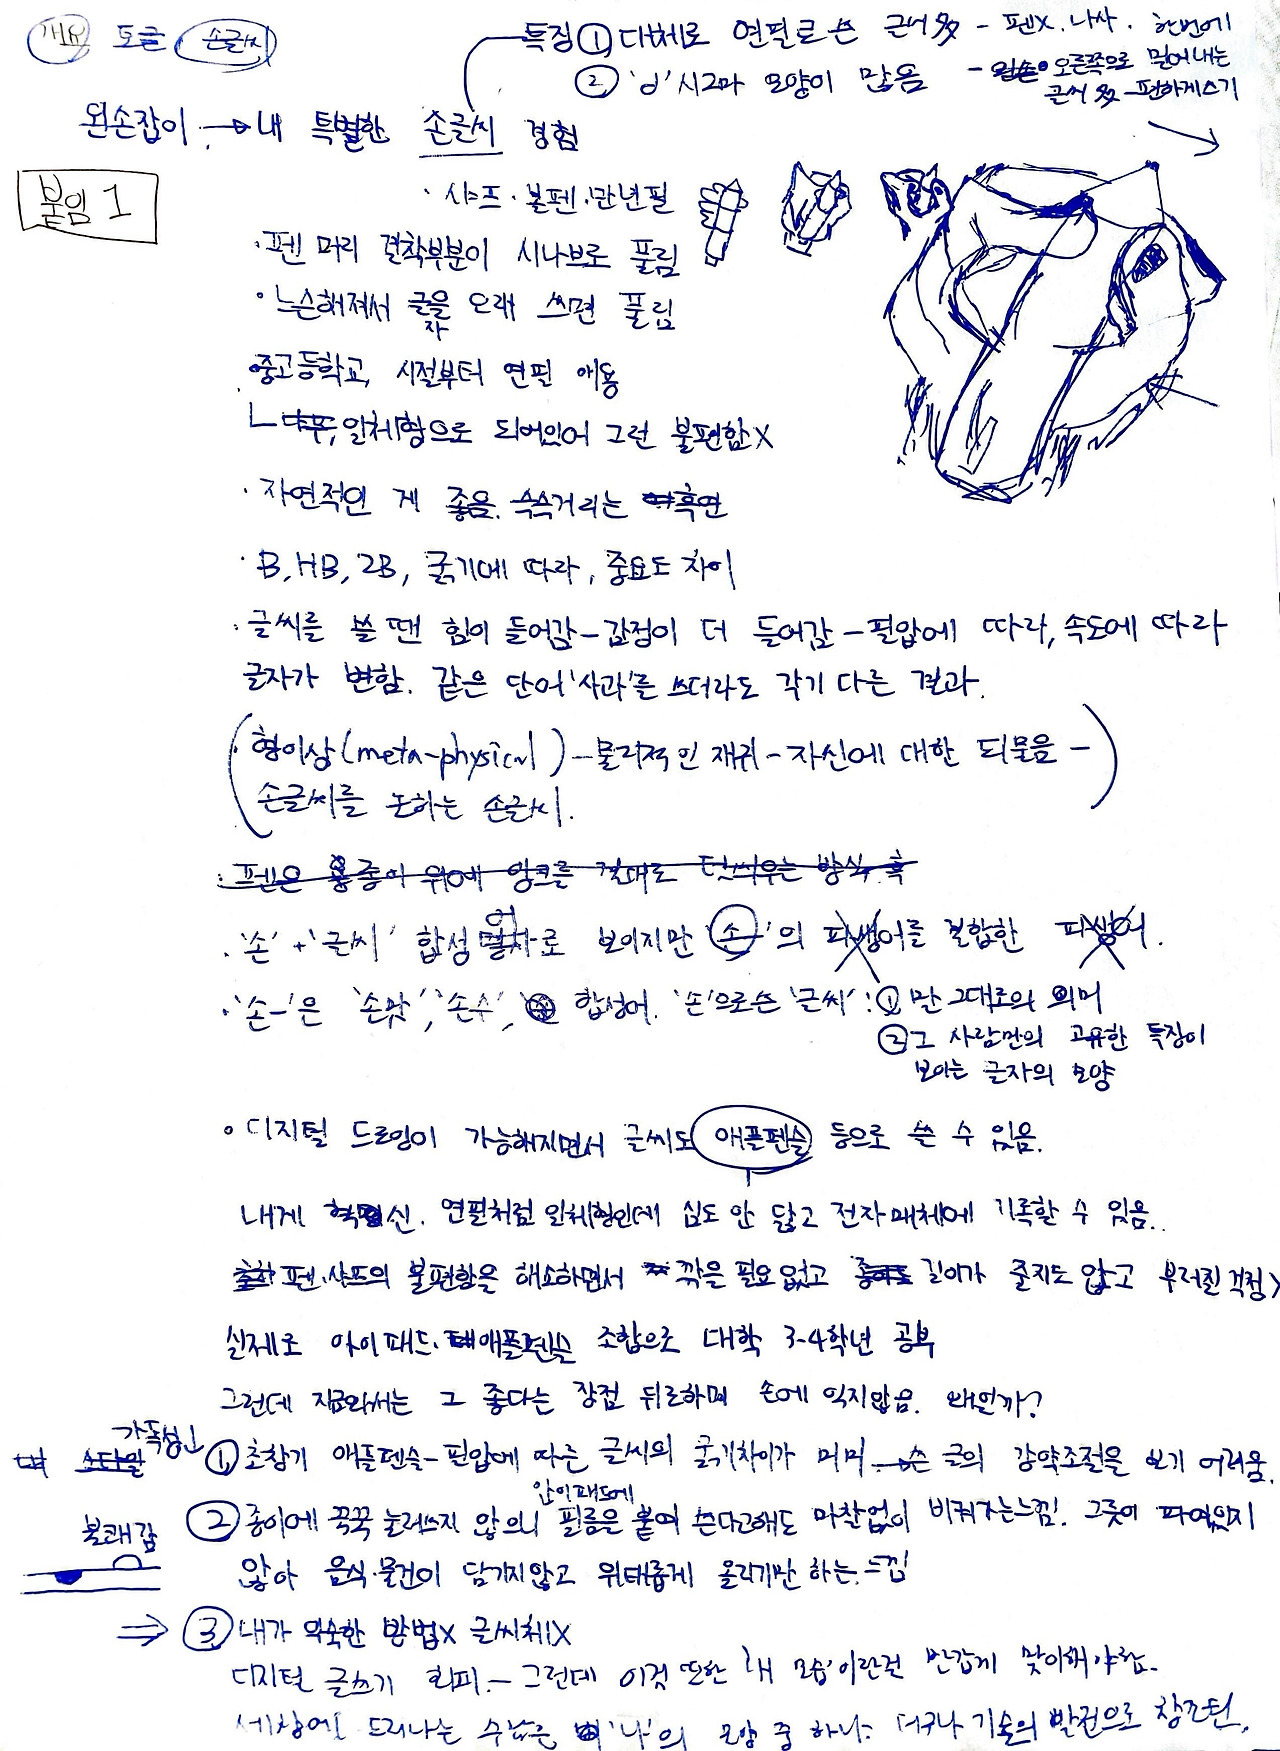 개요 도글 손글씨
특징 ① 대체로 연필로 쓴 글씨 多 - 펜X. 나사. 한번에
② 'ㅇ' 시그마 모양이 많음 - 오른쪽으로 밀어내는
글씨 多 - 편하게쓰기
왼손잡이 → 내 특별한 손글씨 경험
붙임 1
· 샤프·볼펜·만년필
· 펜 머리 결착부분이 시나브로 풀림
· 느슨해져서 글자를 오래 쓰면 풀림
중고등학교 시절부터 연필 애용
ㄴ 일체형으로 되어있어 그런 불편함X
· 자연적인 게 좋음. 쓱쓱거리는 흑연
· B, HB, 2B, 굵기에 따라, 중요도 차이
· 글씨를 쓸 땐 힘이 들어감 - 감정이 더 들어감 - 필압에 따라, 속도에 따라
글자가 변함. 같은 단어 '사과'를 쓰더라도 각기 다른 결과.
(· 형이상(meta-physical) - 물리적인 재귀 - 자신에 대한 되물음 -
손글씨를 논하는 손글씨.)
· 펜은 종이 위에 잉크를 그대로 덧씌우는 방식. 흑
· '손' + '글씨' 합성어로 보이지만 '손-'의 파생어를 결합한 파생어.
· '손-'은 '손맛', '손수', 합성어. '손'으로 쓴 '글씨' : ① 말 그대로의 의미
② 그 사람만의 고유한 특징이
보이는 글자의 모양
· 디지털 드로잉이 가능해지면서 글씨도 애플펜슬 등으로 쓸 수 있음.
내게 혁신. 연필처럼 일체형인데 심도 안 닳고 전자매체에 기록할 수 있음.
펜·샤프의 불편함을 해소하면서 깎을 필요 없고 길이가 줄지도 않고 부러질 걱정X
실제로 아이패드·애플펜슬 조합으로 대학 3-4학년 공부
그런데 지금와서는 그 좋다는 장점 뒤로하며 손에 익지않음. 왜일까?
스타일 가독성↓ ① 초창기 애플펜슬 - 필압에 따른 글씨의 굵기차이가 미미 → 쓴 글의 강약조절을 보기 어려움.
불쾌감 ② 종이에 꾹꾹 눌러쓰지 않으니 아이패드에 필름을 붙여 쓴다고해도 마찰없이 비켜가는느낌. 그릇이 파여있지
않아 음식·물건이 담기지않고 위태롭게 올리기만 하는 느낌
⇒ ③ 내가 익숙한 방법X 글씨체X
디지털 글쓰기 회피. - 그런데 이것 또한 '내 모습'이란걸 반갑게 맞이해야함.
세상에 드러나는 수많은 '나'의 모양 중 하나. 더구나 기술의 발전으로 창조된,